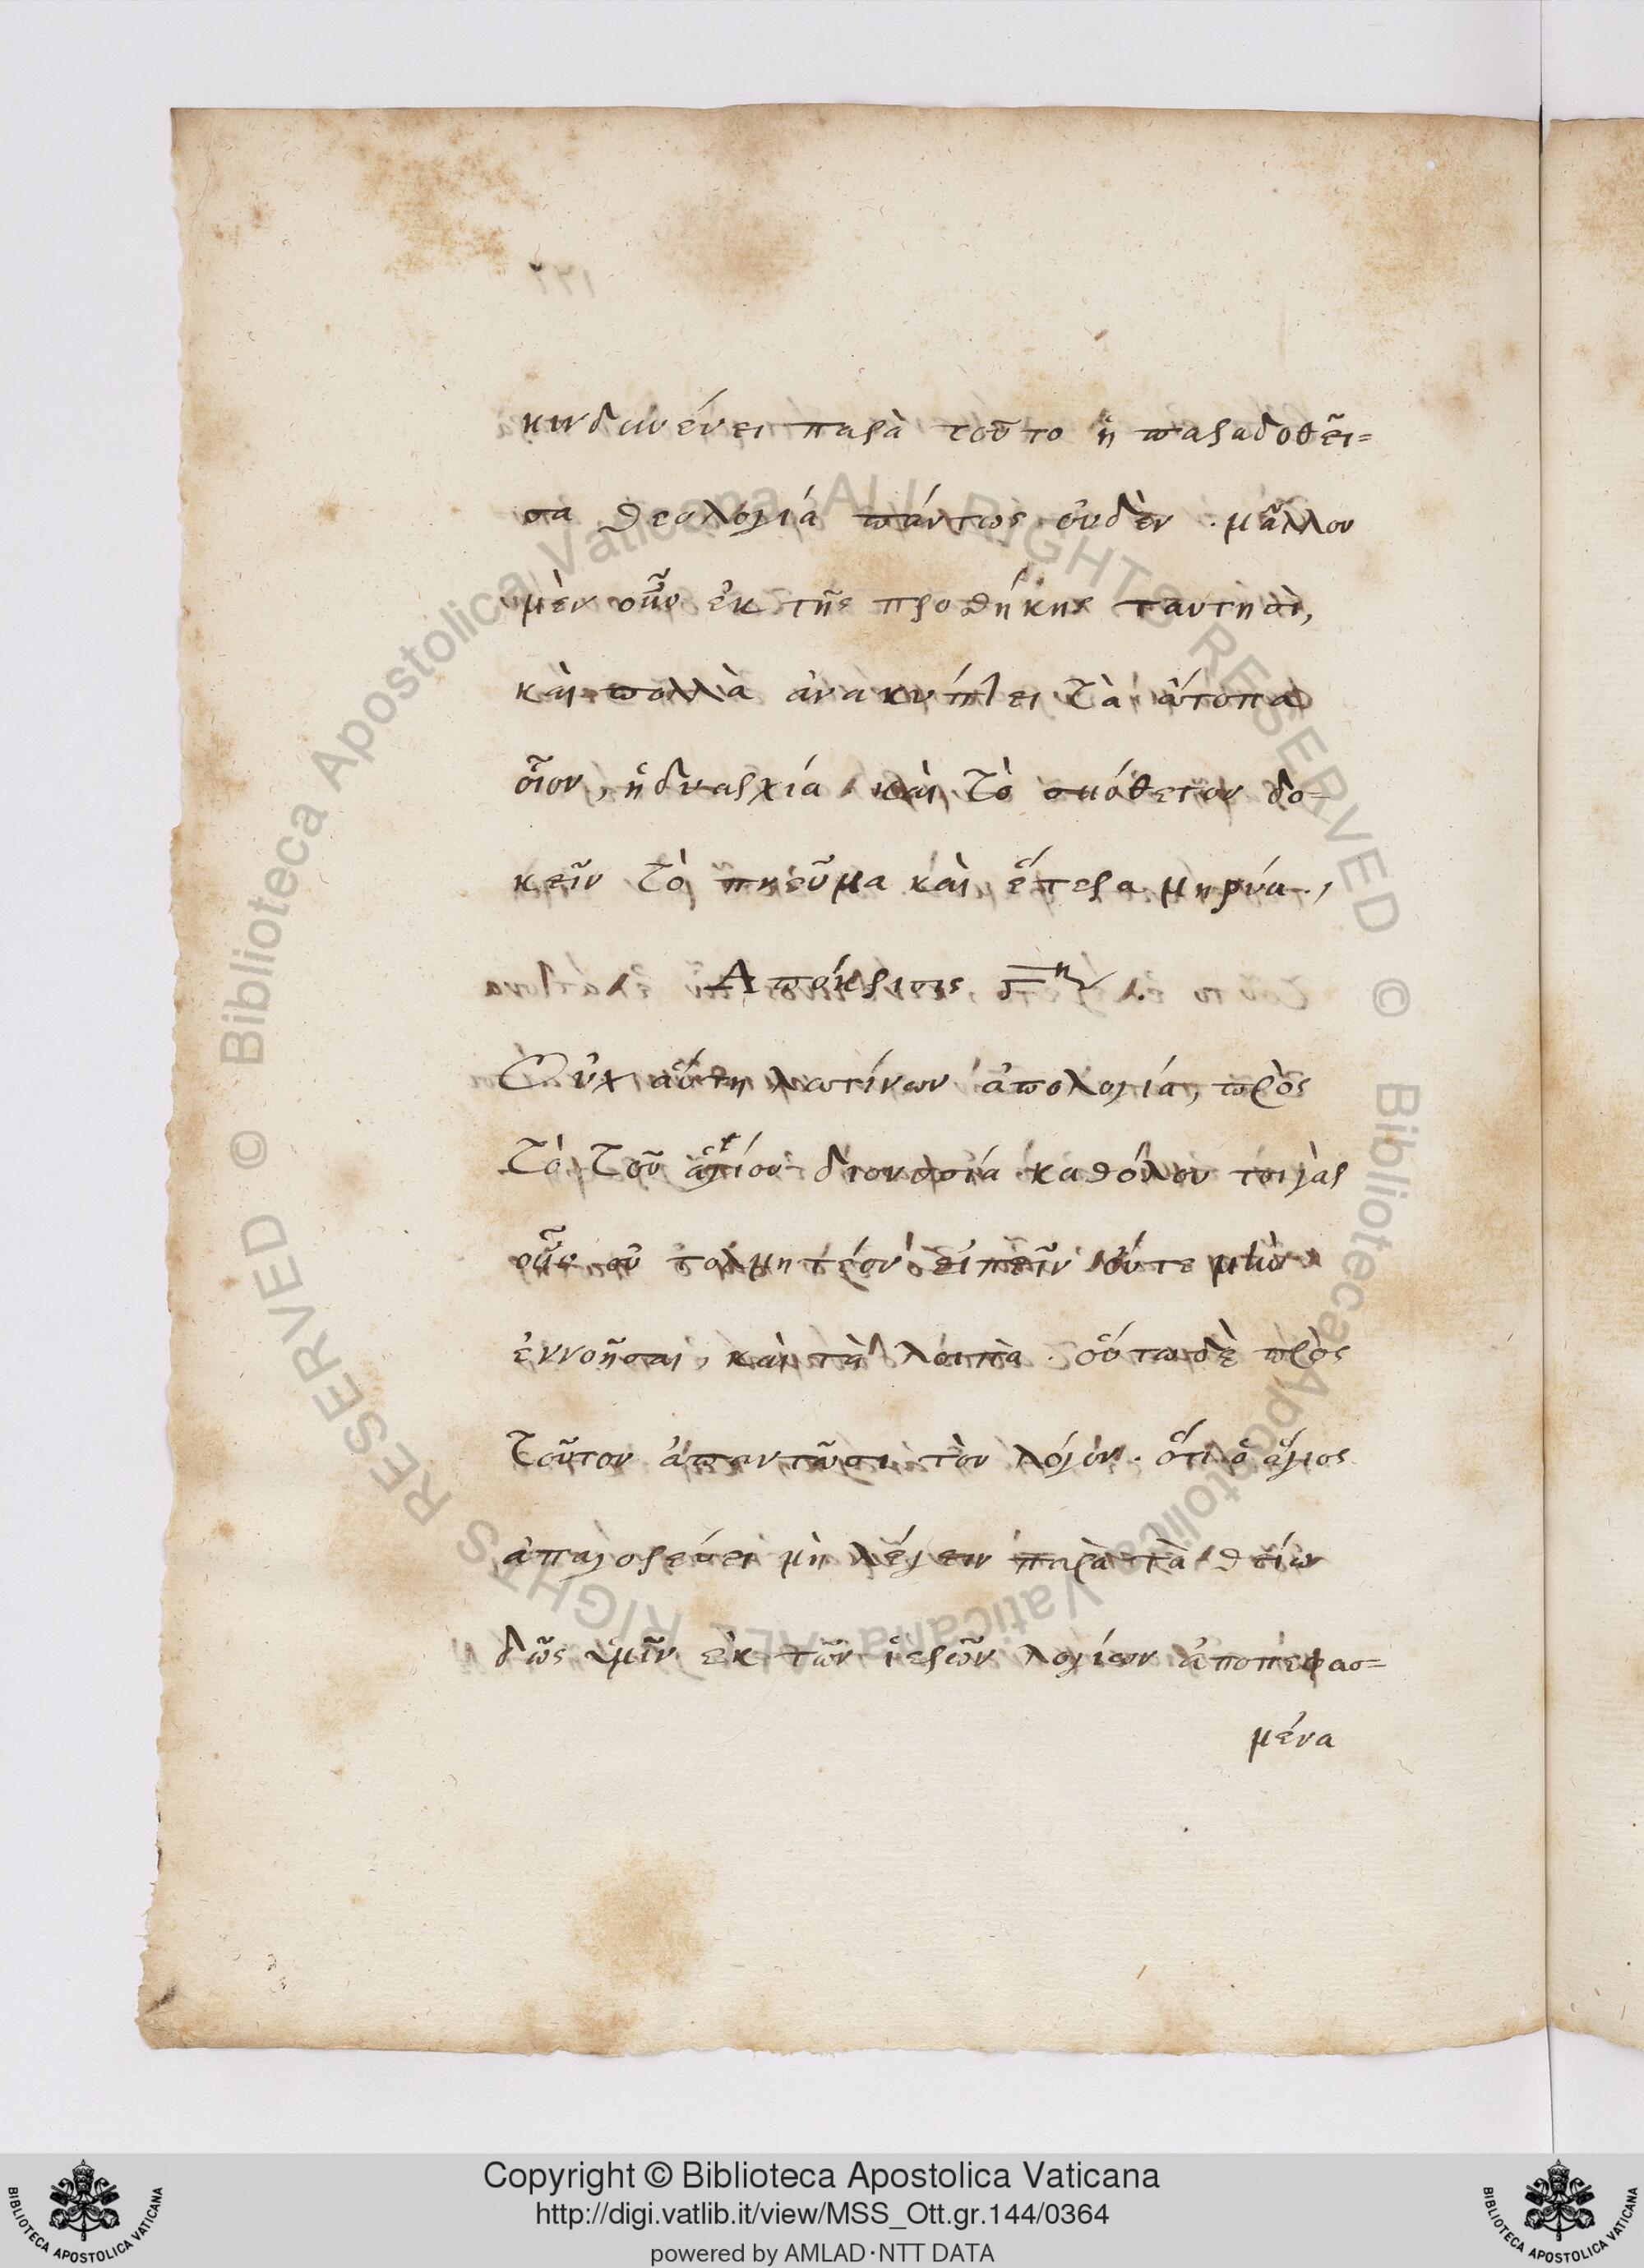 κινδυνεύει παρὰ τοῦτο ἡ παραδοθεῖ=
σα θεολογιά πάντως οὐδὲν . μᾶλλον
μὲν οὖν ἐκ τῆς προθήκης ταυτησὶ,
καὶ πολλὰ ἀνακύπτει τὰ ἄτοπα
οἷον, ἡ δυαρχία, καὶ τὸ σύνθετον δο-
κεῖν τὸ πνεῦμα καὶ ἕτερα μηρύα.,
Ἀπόκρισις
Οὐχ αὕτη λατίνων ἀπολογία, πρὸς
τὸ τοῦ ἁγίου διονυσία καθόλου τοιγὰρ
οὖν οὐ τολμητέον εἰπεῖν οὔτε μὴν
ἐννοῆσαι, καὶ τὰ λοιπὰ . οὕτω δὲ πρὸς
τοῦτον ἀπαντῶσι τὸν λόγον . ὅτι ὁ ἅγιος
ἀπαγορεύει μὴ λέγειν παρὰ τὰ θείω
δῶς ἡμῖν ἐκ τῶν ἱερῶν λογίων ἀποπεφασ=
μένα
Copyright © Biblioteca Apostolica Vaticana
http://digi.vatlib.it/view/MSS_Ott.gr.144/0364
powered by AMLAD·NTT DATA
BIBLIOTECA APOSTOLICA VATICANA
BIBLIOTECA APOSTOLICA VATICANA
© Biblioteca Apostolica Vaticana ALL RIGHTS RESERVED © Biblioteca Apostolica Vaticana ALL RIGHTS RESERVED